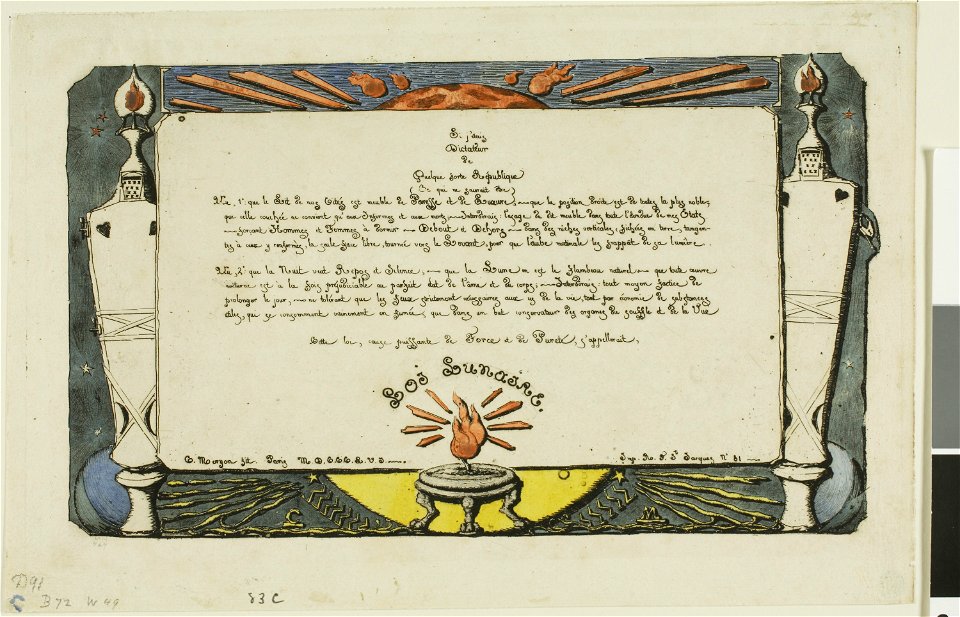 Si j'étais
Dictateur
de
Quelque forte République
(Ce qui ne saurait être)
Vu, 1° que le Lit de nos Cités est meuble de Paresse et de Luxure, que la position Droite est de toutes la plus noble;
que celle couchée ne convient qu'aux Infirmes et aux morts, Interdirais: l'usage de dit meuble dans toute l'étendue de mes Etats
forçant Hommes et Femmes à Dormir Debout et Dehors dans des niches verticales, fichées en terre,
à eux y renfermés, la seule face libre, tournée vers le Levant, pour que l'aube matinale les frappât de sa lumière.
Vu, 2° que la Nuit veut Repos et Silence, que la Lune en est le flambeau naturel que toute œuvre
nocturne est à la fois préjudiciable au parfait état de l'âme et du corps; Interdirais: tout moyen factice de
prolonger le jour, ne tolérant que les feux strictement nécessaires aux us de la vie, tant par économie de substances
utiles, qui se consomment vainement en fumée, que dans un but conservateur des organes du souffle et de la Vue
Cette loi, cause puissante de Force et de Pureté, s'appellerait,
Loi Lunaire.
C. Meryon fit. Paris M D.CCC.L.V.I
Imp. R. F. St Jacques N° 81
C M
D91
B72 W49
83 C